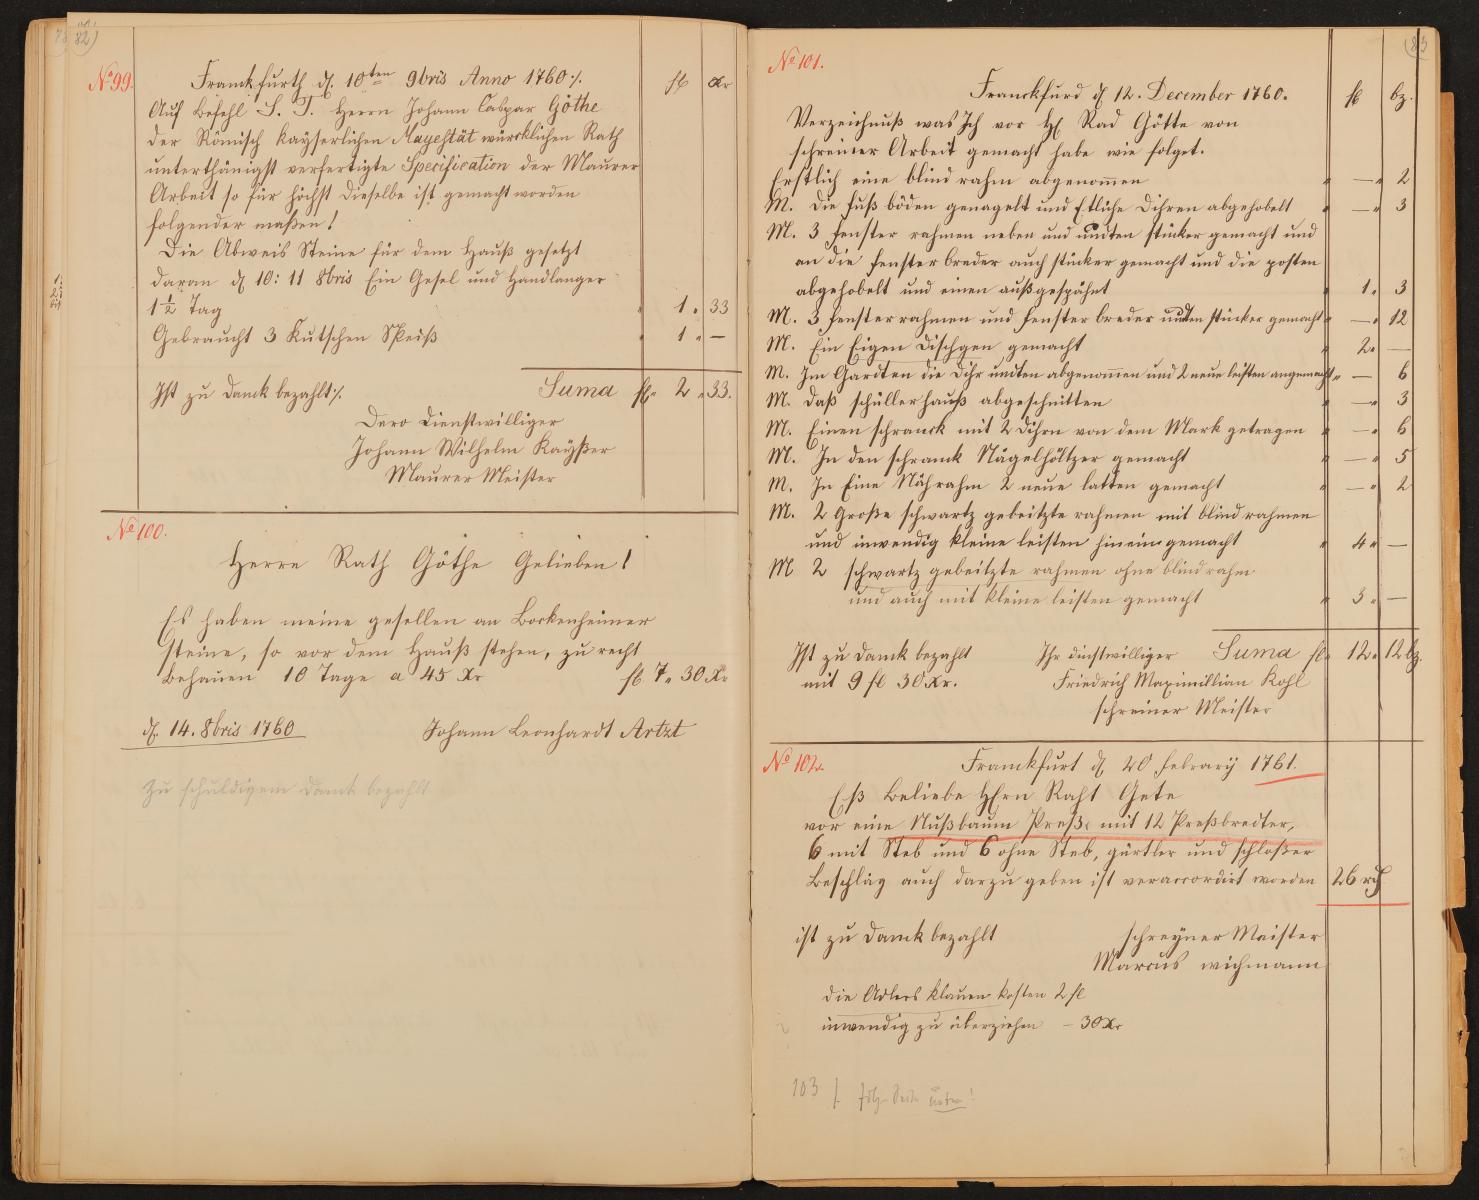 82)
No 99.
Franckfurth d. 10ten 9bris Anno 1760 ./.
fl
Xr
Auf Befehl S. T. Herrn Johann Caspar Göthe
der Römisch Kayserlichen Mayestät würcklichen Rath
unterthänigst verfertigte Specification der Maurer
Arbeit so für höchst Dieselbe ist gemacht worden
folgender maßen!
Die Abweis Steine für dem Hauß gesetzt
daran d 10: 11 8bris Ein Gesel und Handlanger
1 1/2 Tag " 1 " 33
Gebraucht 3 Kutschen Speiß " 1 " —
Ist zu Danck bezahlt ./. Suma fl " 2 " 33.
Dero Dienstwilliger
Johann Wilhelm Kayßer
Maurer Meister
No 100.
Herre Rath Göthe Gelieben!
Es haben meine gesellen an Bockenheimer
steine, so vor dem Hauß stehen, zu recht
Behauen 10 Tage a 45 Xr fl 7 " 30 Xr
d. 14. 8bris 1760 Johann Leonhardt Artzt
Zu schuldigem Danck bezahlt
83
No 101.
Franckfurd d 12. December 1760.
fl
bz.
Verzeichnuß was Ich vor H Rad Götte von
schreiner Arbeit gemacht habe wie folget.
Erstlich eine blind rahm abgenommen " — " 2
M. Die fuß böden genagelt und Etliche Dihren abgehobelt " — " 3
M. 3 fenster rahmen neben und undten stücker gemacht und
an die fensterbreder auch stücker gemacht und die posten
abgehobelt und einen außgespähnt " 1 " 3
M. 3 fensterrahmen und fenster breder undten stücker gemacht " — " 12
M. Ein Eigen Dischgen gemacht " 2 " —
M. Im Gardten die Dihr undten abgenommen und 2 neue leisten angemacht " — 6
M. Daß schüllerhauß abgeschnitten " — " 3
M. Einen schranck mit 2 Dihrn von dem Mark getragen " — " 6
M. In den schranck Nägelhöltzer gemacht " — " 5
M. In Eine Nährahm 2 neue latten gemacht " — " 2
M. 2 Große schwartz gebeitzte rahmen mit blind rahmen
und inwendig kleine leisten hinein gemacht " 4 " —
M 2 schwartz gebeitzte rahmen ohne blindrahm
und auch mit kleine leisten gemacht " 3 " —
Ist zu danck bezahlt Ihr dinstwilliger Suma fl " 12 " 12 bz.
mit 9 fl 30 Xr. Friedrich Maximillian Kohl
schreiner Meister
No 102.
Franckfurt d 20 Februarÿ 1761.
Eß Beliebe HErn Raht Gete
vor eine Nußbaum Preß, mit 12 Preßbredter,
6 mit Steb und 6 ohne Steb, gürtler und schloßer
Beschläg auch darzu geben ist veraccordirt worden 26 rth
ist zu danck bezahlt schreyner Maister
Marcus wichmann
die Adlers Klauen kosten 2 fl
inwendig zu überziehen — 30 Xr
103